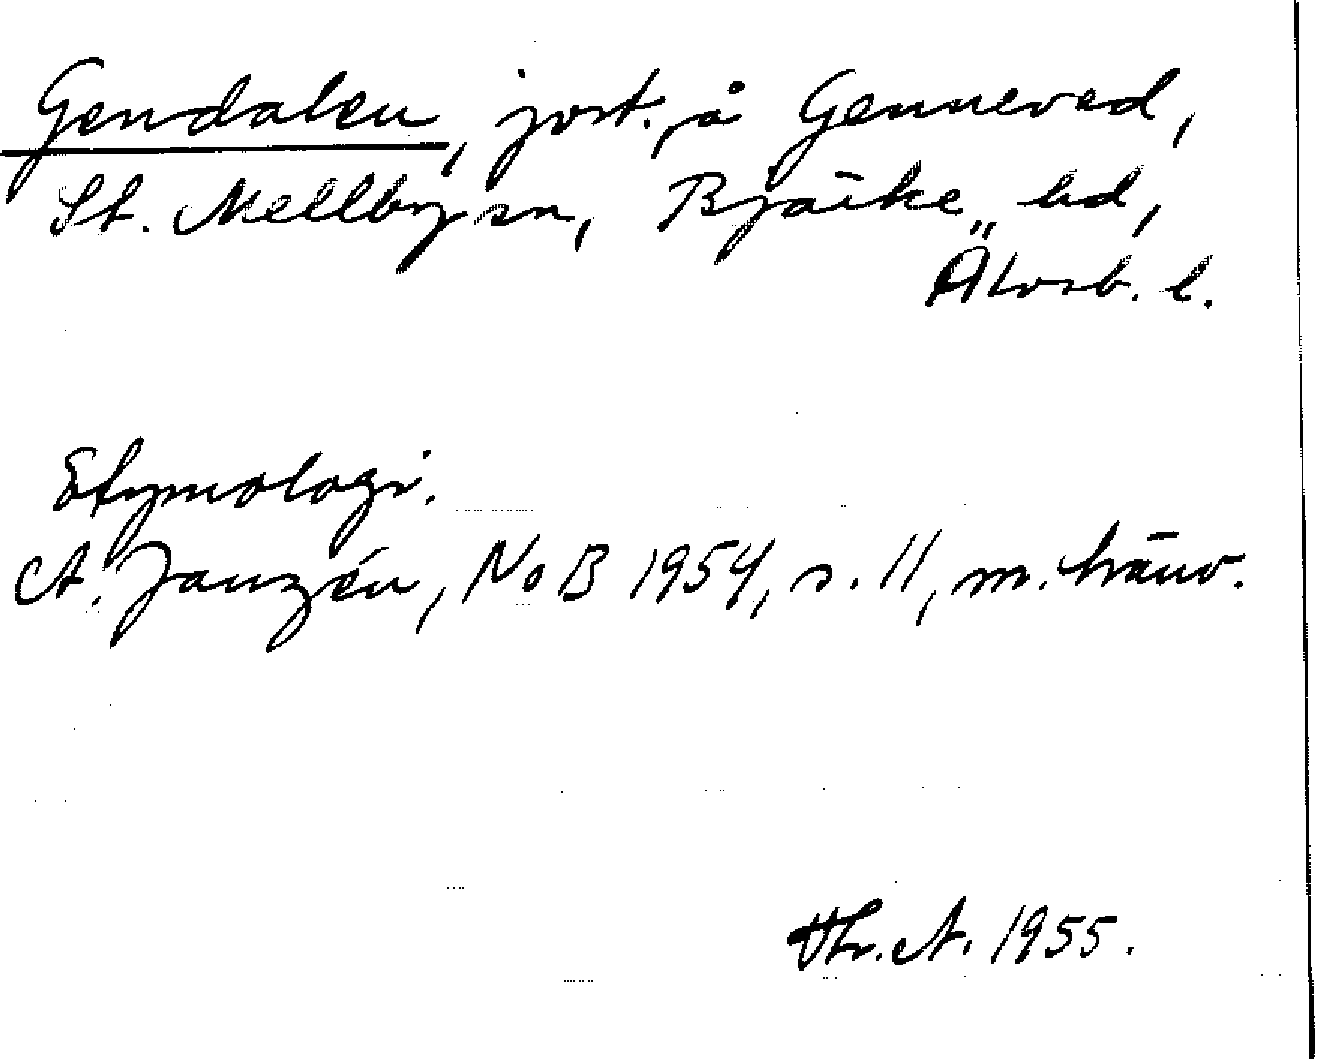 Gendalen, jvst., å Genneved,
St. Mellby sn, Bjärke hd,
Älvsb. l.
Etymologi.
A. Janzén, NoB 1954, s. 11, m. hänv.
Thr. A. 1955.